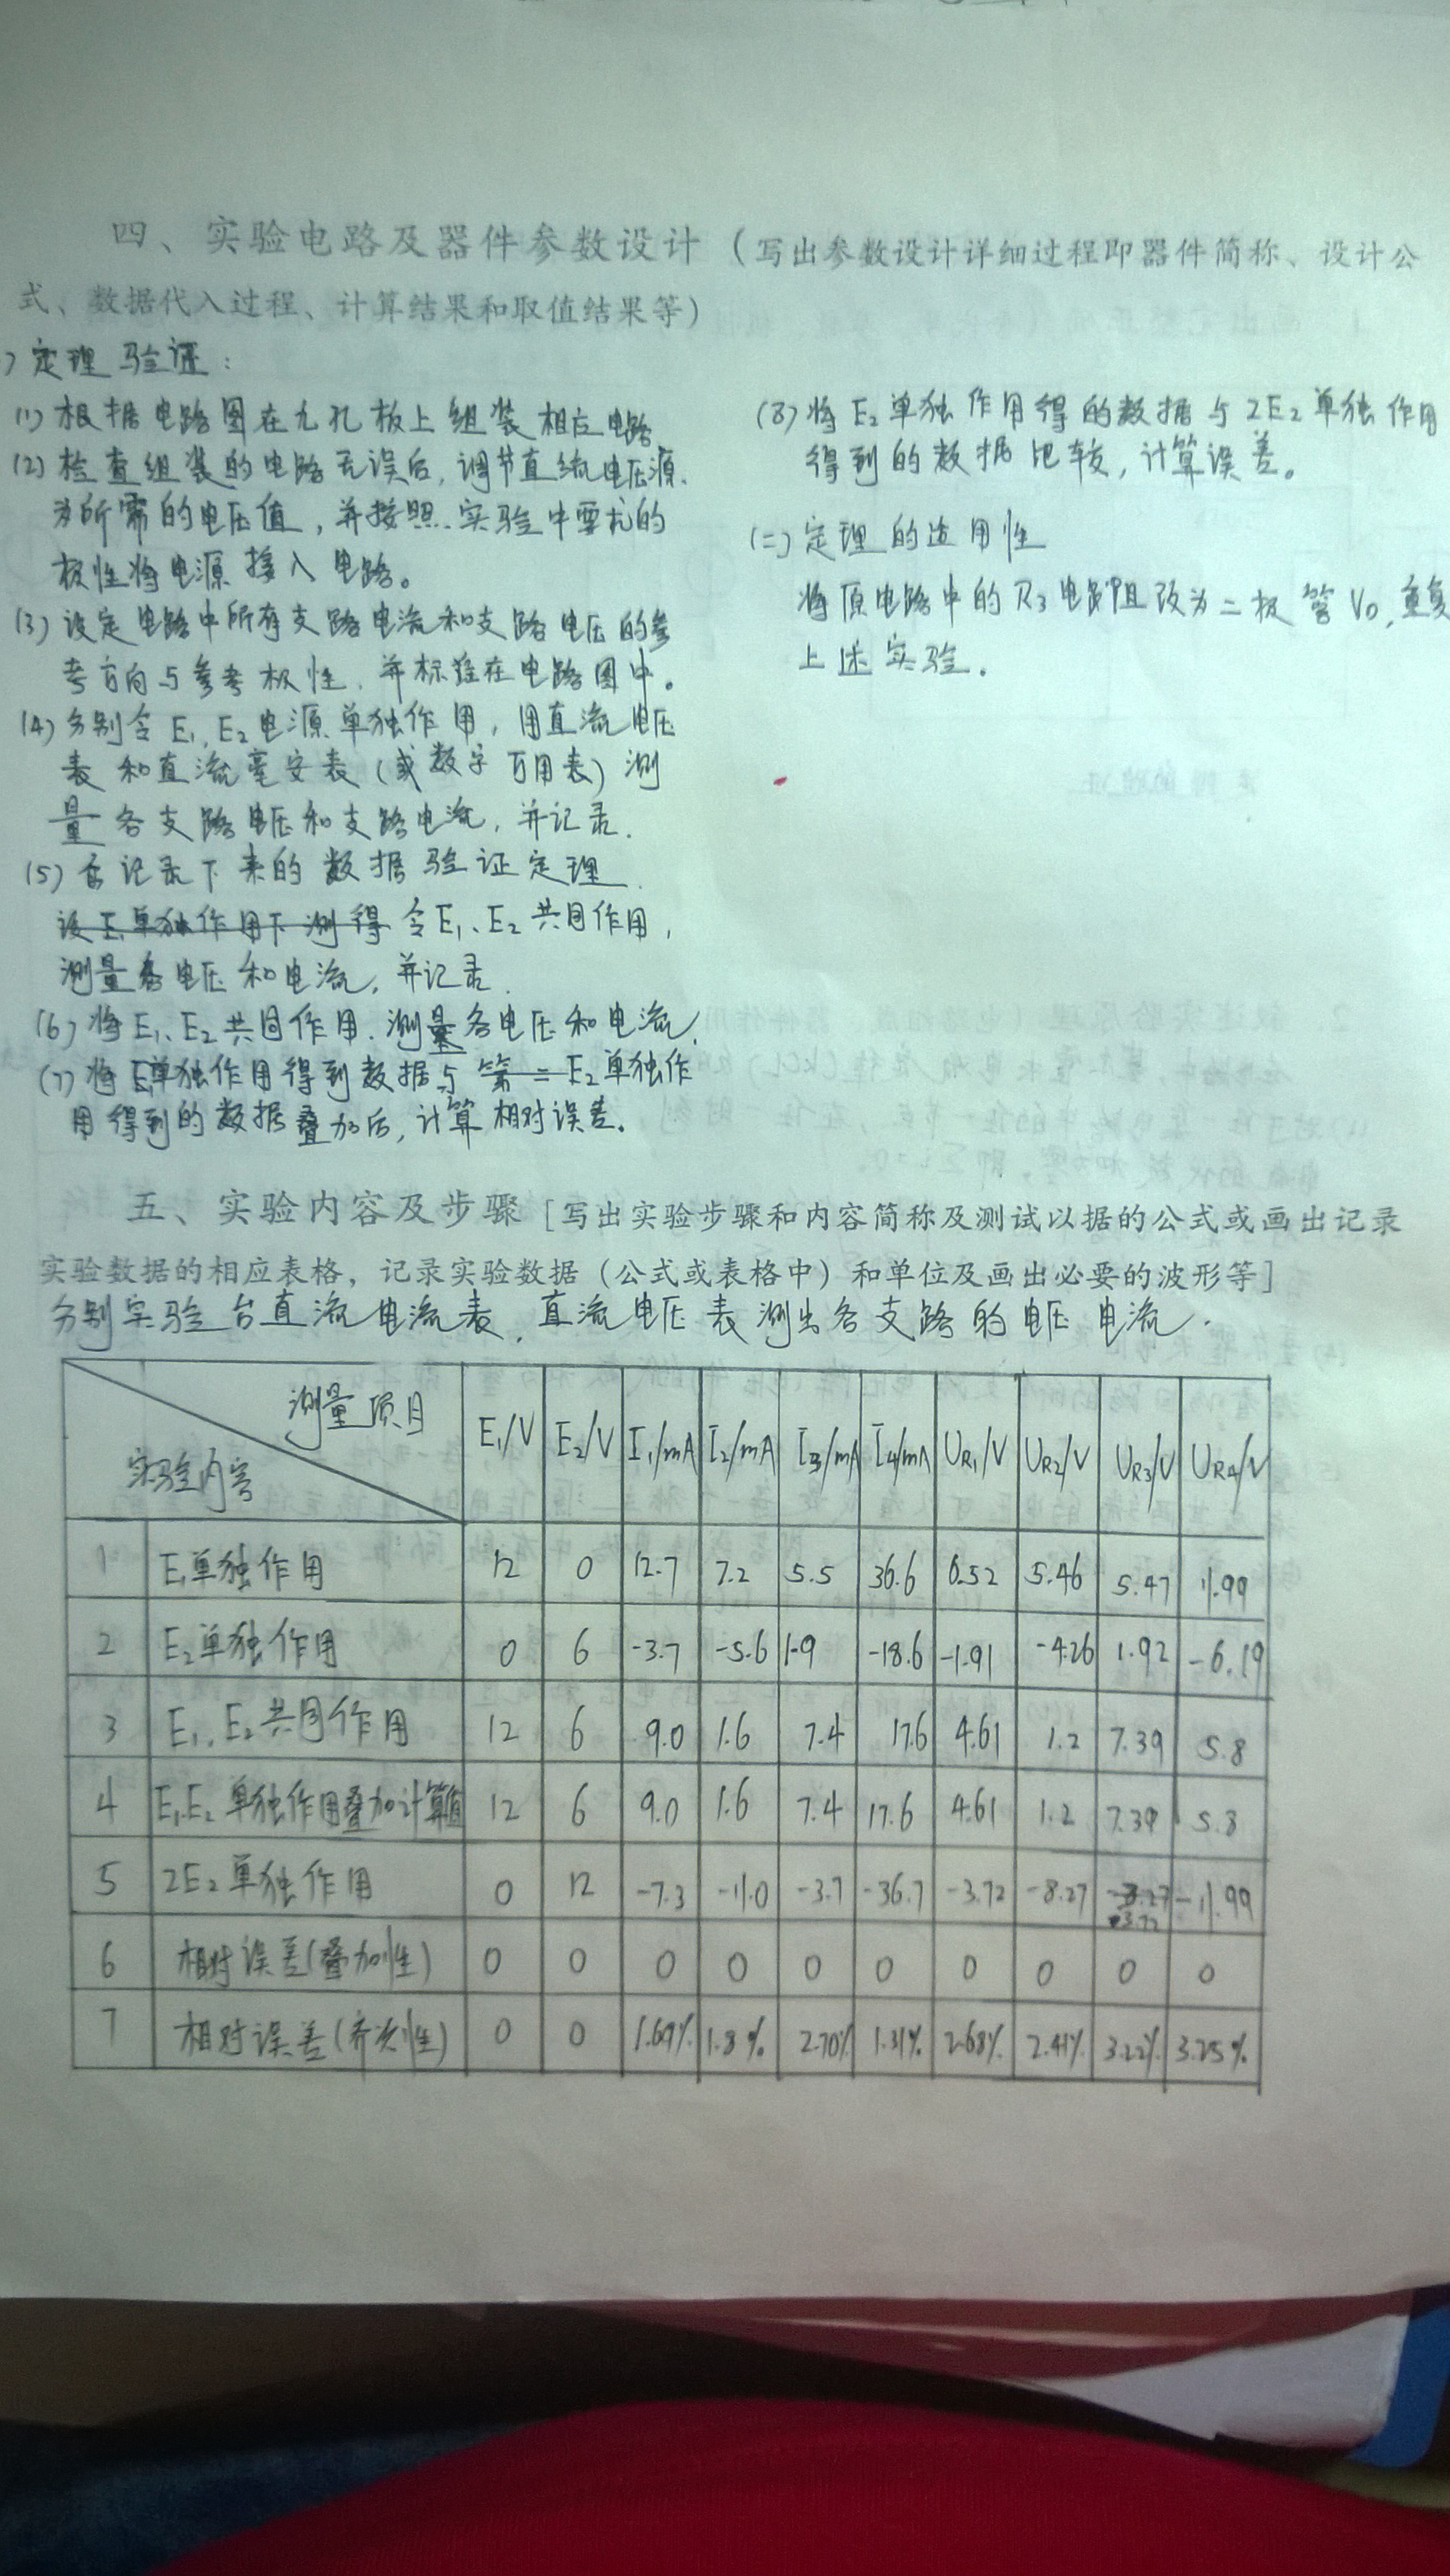 四、实验电路及器件参数设计（写出参数设计详细过程即器件简称、设计公
式、数据代入过程、计算结果和取值结果等）
) 定理验证:
(1) 根据电路图在九孔板上组装相应电路
(2) 检查组装的电路无误后,调节直流电压源
为所需的电压值,并按照实验中要求的
极性将电源接入电路。
(3) 设定电路中所有支路电流和支路电压的参
考方向与参考极性,并标注在电路图中。
(4) 分别令E₁、E₂电源单独作用,用直流电压
表和直流毫安表(或数字万用表)测
量各支路电压和支路电流,并记录.
(5) 记录下来的数据验证定理.
设E₁单独作用下测得 令E₁、E₂共同作用,
测量各电压和电流,并记录.
(6) 将E₁、E₂共同作用.测量各电压和电流,
(7) 将E₁单独作用得到数据与第二E₂单独作
用得到的数据叠加后,计算相对误差.
(8) 将E₂单独作用得的数据与2E₂单独作用
得到的数据比较,计算误差。
(二) 定理的适用性
将原电路中的R₃电阻改为二极管V₀,重复
上述实验.
五、实验内容及步骤[写出实验步骤和内容简称及测试以据的公式或画出记录
实验数据的相应表格，记录实验数据（公式或表格中）和单位及画出必要的波形等]
分别实验台直流电流表,直流电压表测出各支路的电压电流.
测量项目 实验内容 E₁/V E₂/V I₁/mA I₂/mA I₃/mA I₄/mA UR₁/V UR₂/V UR₃/V UR₄/V
1 E₁单独作用 12 0 12.7 7.2 5.5 36.6 6.52 5.46 5.47 11.99
2 E₂单独作用 0 6 -3.7 -5.6 1.9 -18.6 -1.91 -4.26 1.92 -6.19
3 E₁、E₂共同作用 12 6 9.0 1.6 7.4 17.6 4.61 1.2 7.39 5.8
4 E₁、E₂单独作用叠加计算值 12 6 9.0 1.6 7.4 17.6 4.61 1.2 7.39 5.8
5 2E₂单独作用 0 12 -7.3 -11.0 -3.7 -36.7 -3.72 -8.27 3.72 -11.99
6 相对误差(叠加性) 0 0 0 0 0 0 0 0 0 0
7 相对误差(齐次性) 0 0 1.69% 1.8% 2.70% 1.31% 2.68% 2.41% 3.22% 3.25%